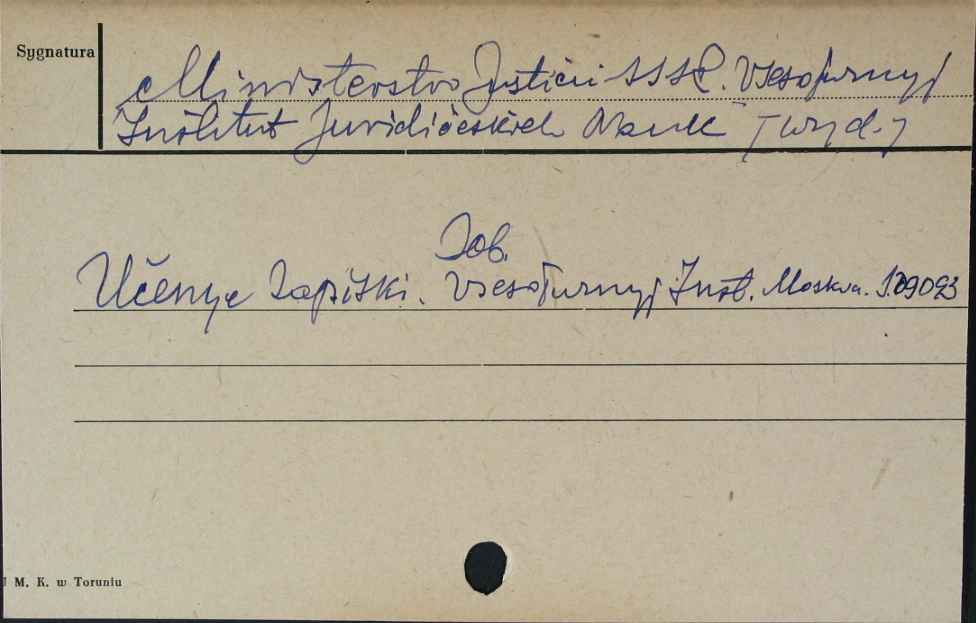 Sygnatura
Ministerstvo Justicii SSSR. Vsesojuznyj
Institut Juridičeskich Nauk [wyd.]
Zob.
Učenye Zapiski. Vsesojuznyj Inst. Moskva. S.09093
M. K. w Toruniu